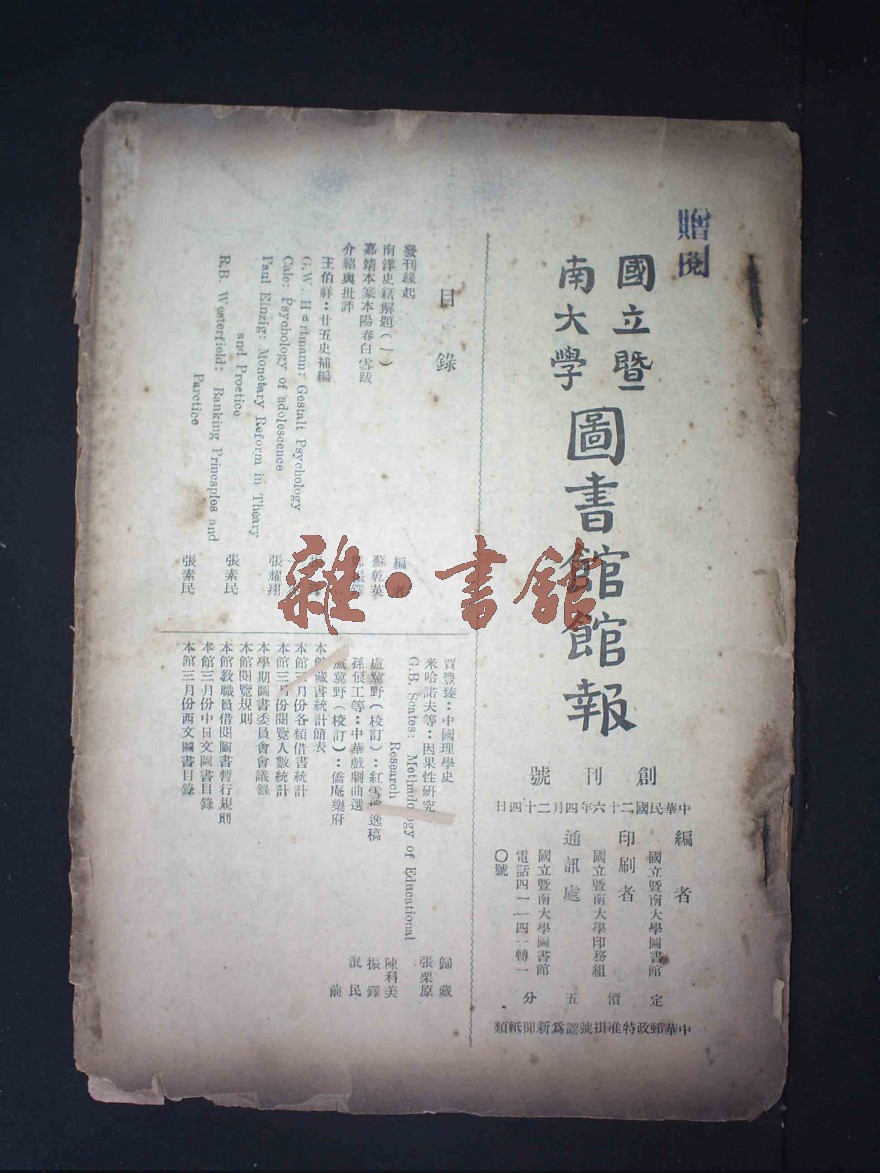 贈閱
國立暨
南大學
圖書館館報
創刊號
中華民國二十六年四月二十四日
編者 國立暨南大學圖書館
印刷者 國立暨南大學印務組
通訊處 國立暨南大學圖書館
電話四一一四一轉一
〇號
定價五分
中華郵政特准掛號認爲新聞紙類
目錄
發刊緣起 編者
南洋史籍解題(一) 蘇乾英
嘉靖本篆本陽春白雪跋
介紹與批評
王伯祥:廿五史補編
G.W. Hartmann: Gestalt Psychology
Cale: Psychology of adolescence 張耀翔
Paul Einzig: Monetary Reform in Theary
and Proetice 張素民
R.B. Westerfield: Banking Princsples and
Parctice 張素民
賈豐臻:中國理學史 歸藏
米哈諾夫等:因果性研究 張栗原
G.B. Scates: Methadology of Educational
Research 陳科美
盧冀野(校訂):紅雪樓逸稿 振鐸
孫俍工等:中華戲劇曲選 泯民
盧冀野(校訂):僑庵樂府 前
本館藏書統計簡表
本館三月份各類借書統計
本館三月份閱覽人數統計
本學期圖書委員會會議錄
本館閱覽規則
本館教職員借閱圖書暫行規則
本館三月份中日文圖書目錄
本館三月份西文圖書目錄
雜·書館